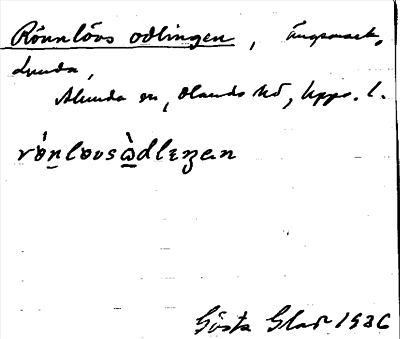 Rönnlövs odlingen, ängsmark,
Lunda,
Alunda sn, Olands hd, Upps. l.
rö̀nlovsòdleŋan
Gösta Glar 1936